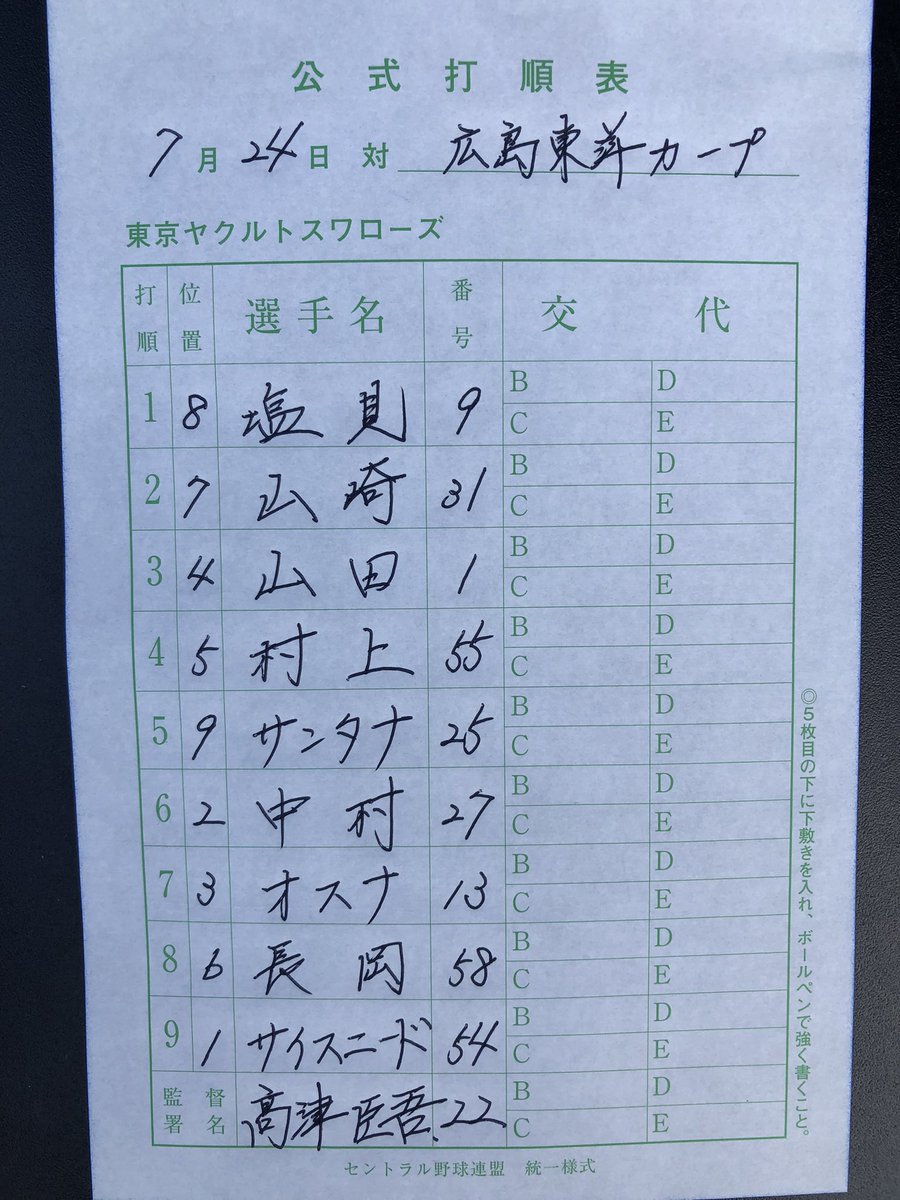 公式打順表
7月24日対 広島東洋カープ
東京ヤクルトスワローズ
打順 位置 選手名 番号 交代
1 8 塩見 9 B D
C E
2 7 山崎 31 B D
C E
3 4 山田 1 B D
C E
4 5 村上 55 B D
C E
5 9 サンタナ 25 B D
C E
6 2 中村 27 B D
C E
7 3 オスナ 13 B D
C E
8 6 長岡 58 B D
C E
9 1 サイスニード 54 B D
C E
監督署名 高津臣吾 22 B D
C E
セントラル野球連盟 統一様式
◎5枚目の下に下敷きを入れ、ボールペンで強く書くこと。